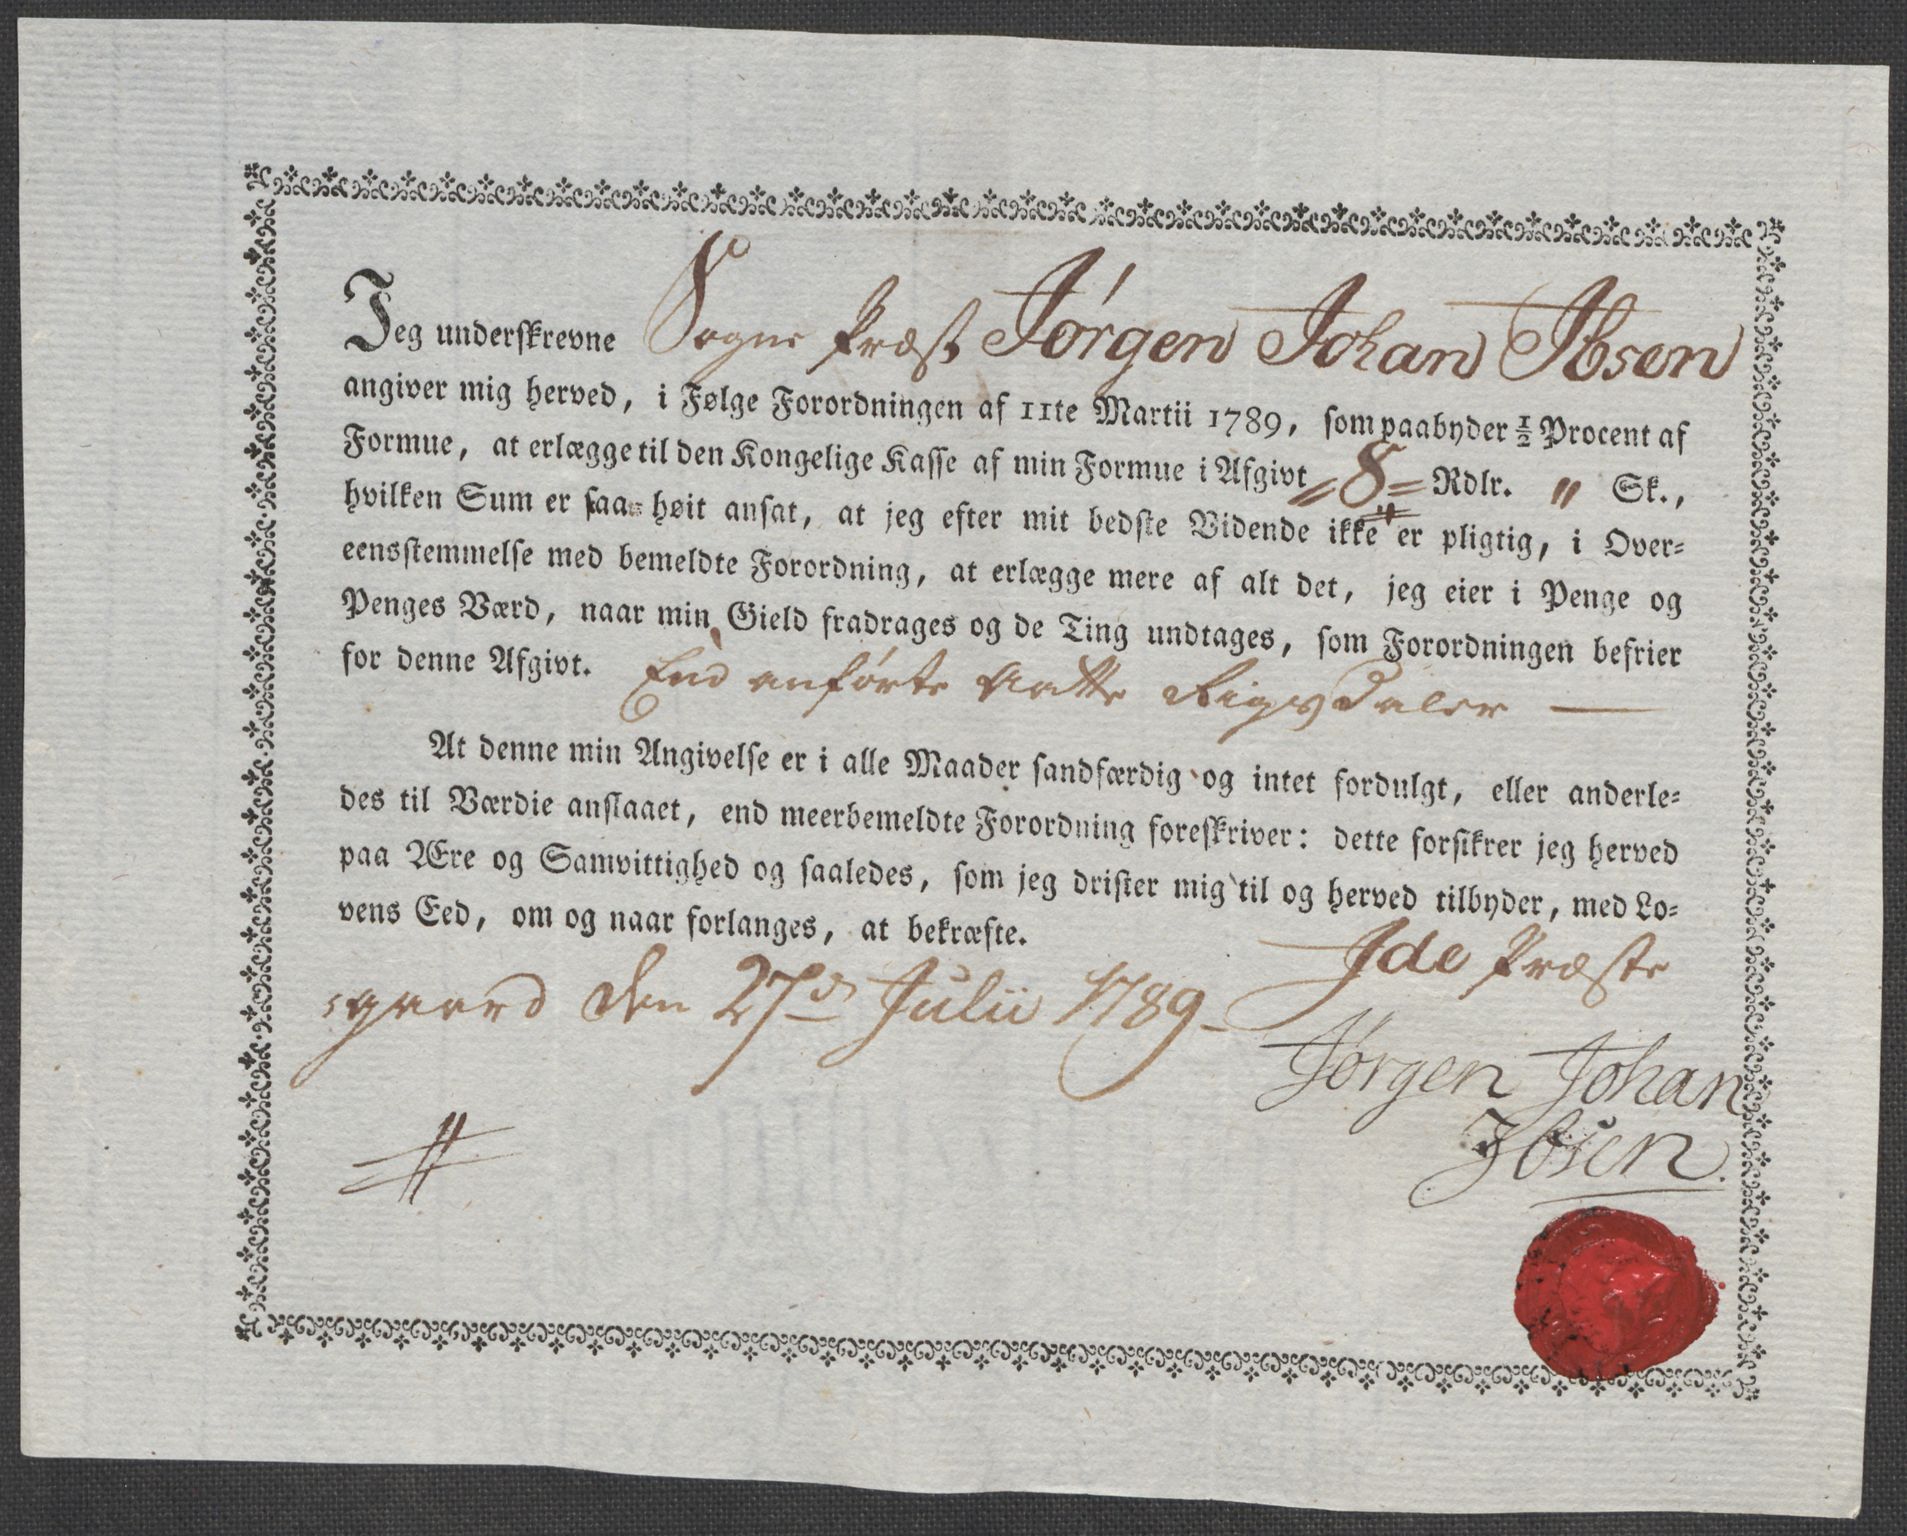 Jeg underskrevne Sogne Præst Jørgen Johan Ibsen
angiver mig herved, i Følge Forordningen af 11te Martii 1789, som paabyder ½ Procent af
Formue, at erlægge til den Kongelige Kasse af min Formue i Afgivt = 8 = Rdlr. " Sk.,
hvilken Sum er saa høit ansat, at jeg efter mit bedste Vidende ikke er pligtig, i Over-
eensstemmelse med bemeldte Forordning, at erlægge mere af alt det, jeg eier i Penge og
Penges Værd, naar min Gield fradrages og de Ting undtages, som Forordningen befrier
for denne Afgivt. End anførte Aatte Rigsdaler —
At denne min Angivelse er i alle Maader sandfærdig og intet fordulgt, eller anderle-
des til Værdie anslaaet, end meerbemeldte Forordning foreskriver: dette forsikrer jeg herved
paa Ære og Samvittighed og saaledes, som jeg drister mig til og herved tilbyder, med Lo-
vens Eed, om og naar forlanges, at bekræfte.
Ide Præste
gaard den 27d Julii 1789 –
Jørgen Johan
Ibsen.